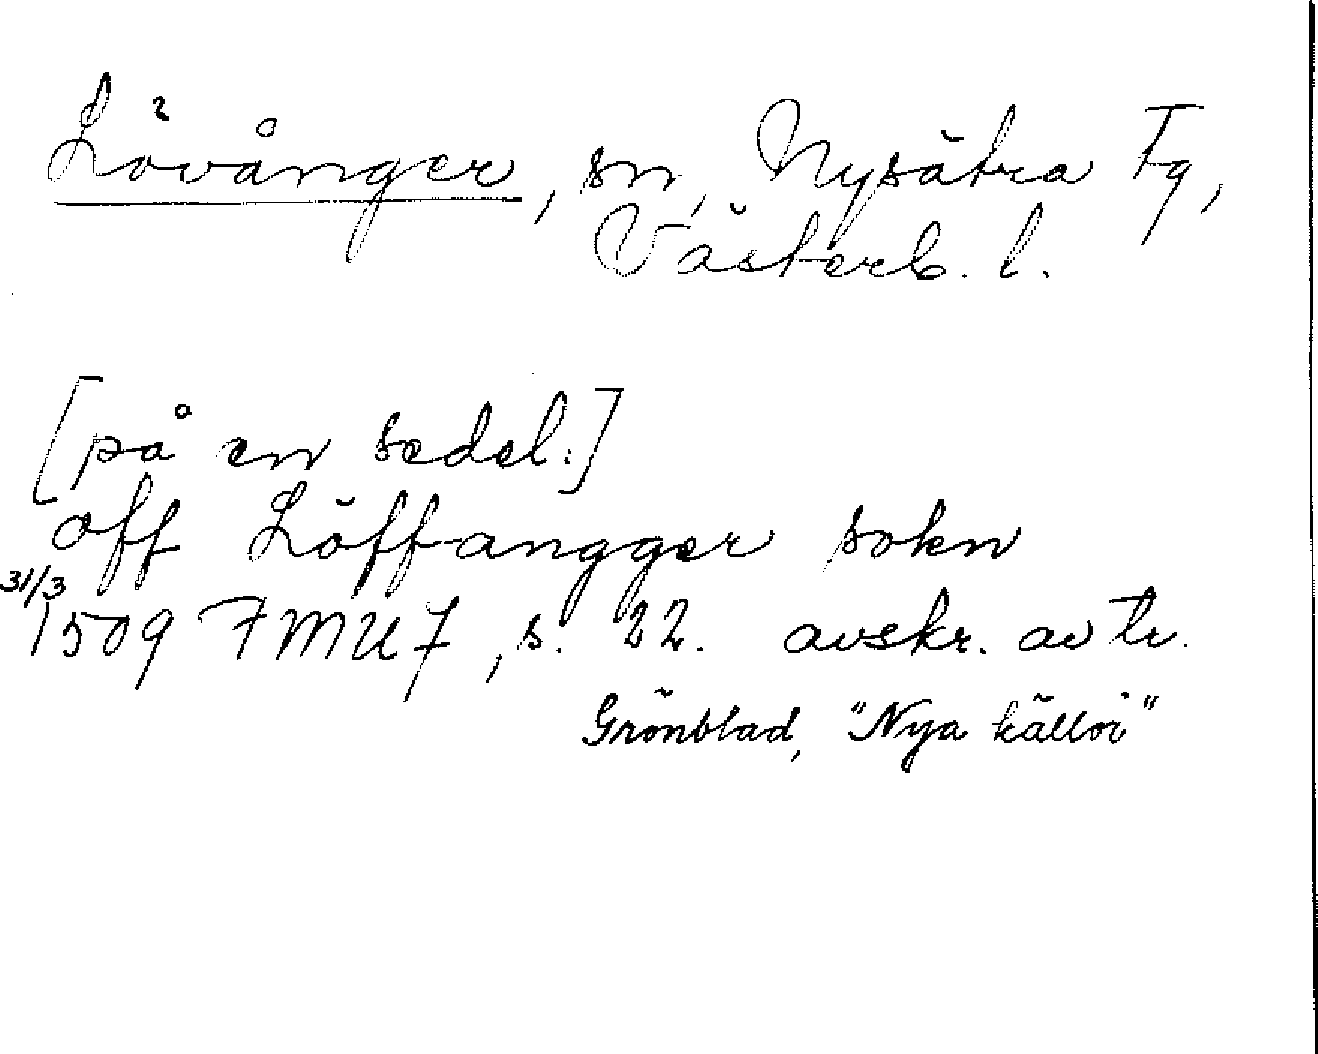 Lövånger, sn, Nysätra Tg,
Västerb. l.
[på en sedel:]
off Löffangger sokn
31/3
1509 FMU 7, s. 22. avskr. av tr.
Grönblad, "Nya källor"